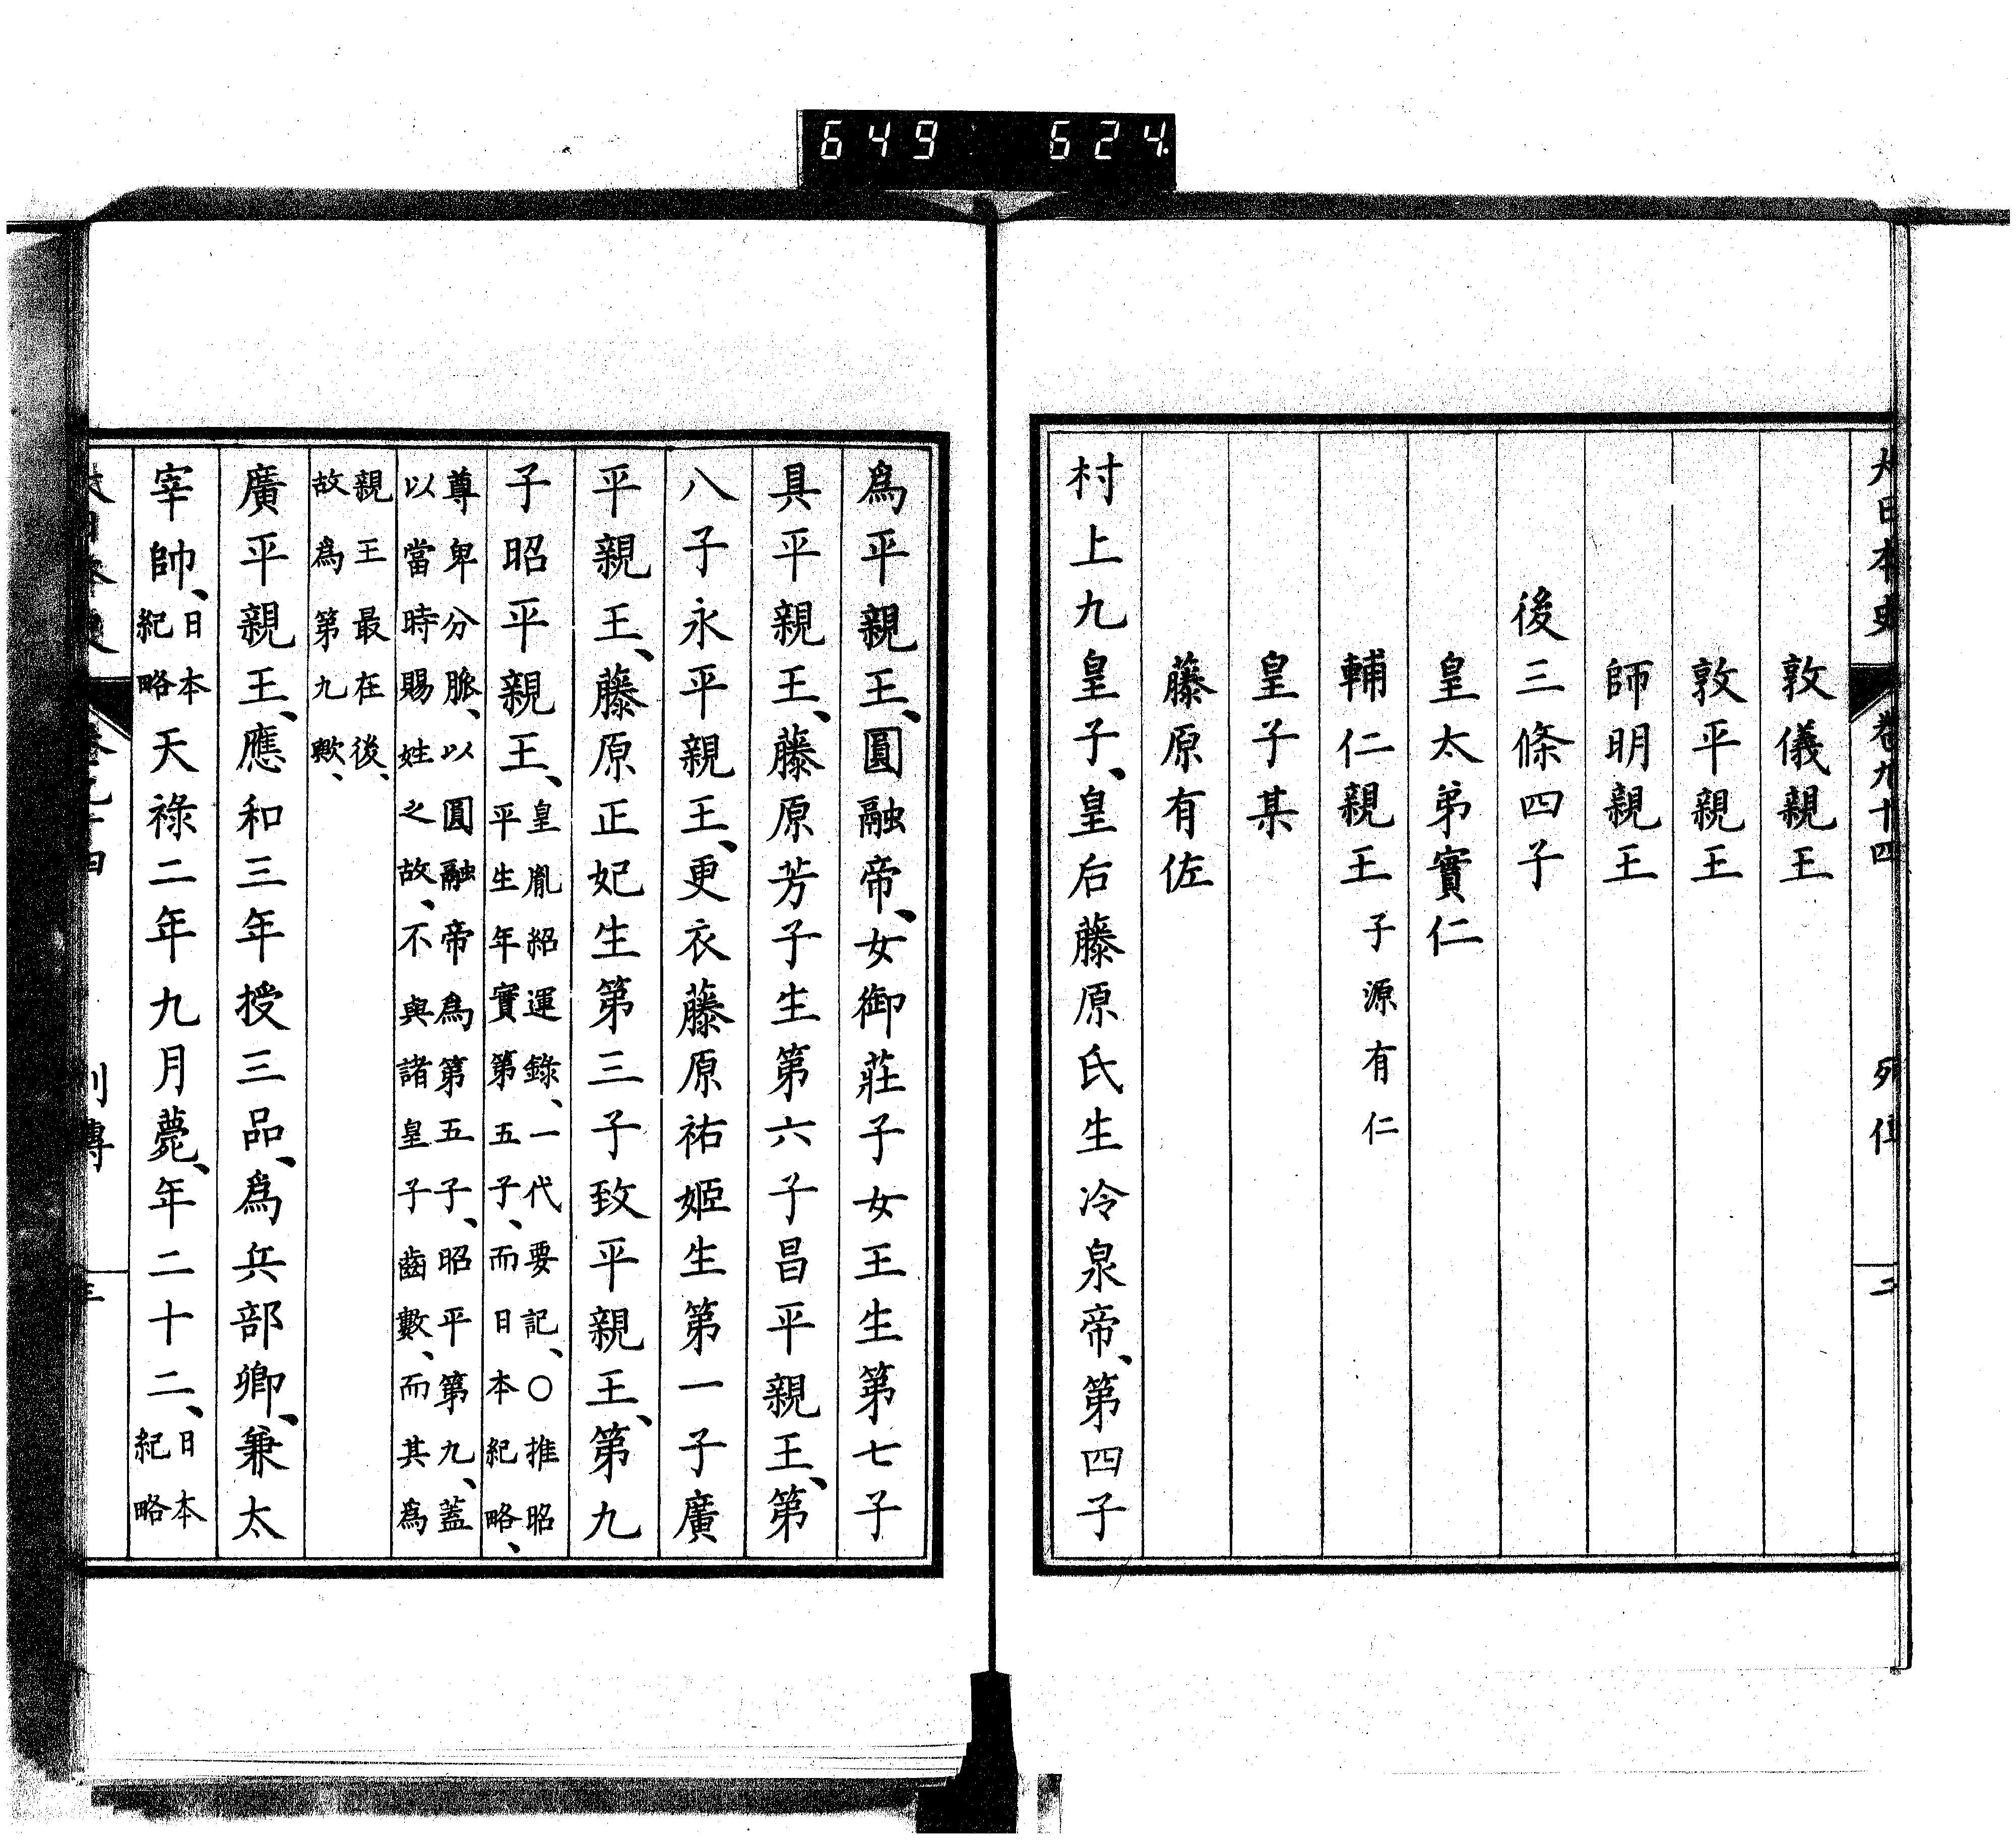 649 624
大日本史 卷九十四 列傳 二
敦儀親王
敦平親王
師明親王
後三條四子
皇太弟實仁
輔仁親王 子源有仁
皇子某
藤原有佐
村上九皇子、皇后藤原氏生冷泉帝、第四子
爲平親王、圓融帝、女御莊子女王生第七子
具平親王、藤原芳子生第六子昌平親王、第
八子永平親王、更衣藤原祐姬生第一子廣
平親王、藤原正妃生第三子致平親王、第九
子昭平親王、皇胤紹運錄、一代要記、○推昭
平生年實第五子、而日本紀略、
尊卑分脈、以圓融帝爲第五子、昭平第九、蓋
以當時賜姓之故、不與諸皇子齒數、而其爲
親王最在後、
故爲第九歟、
廣平親王、應和三年授三品、爲兵部卿、兼太
宰帥、日本紀略天祿二年九月薨、年二十二、日本紀略